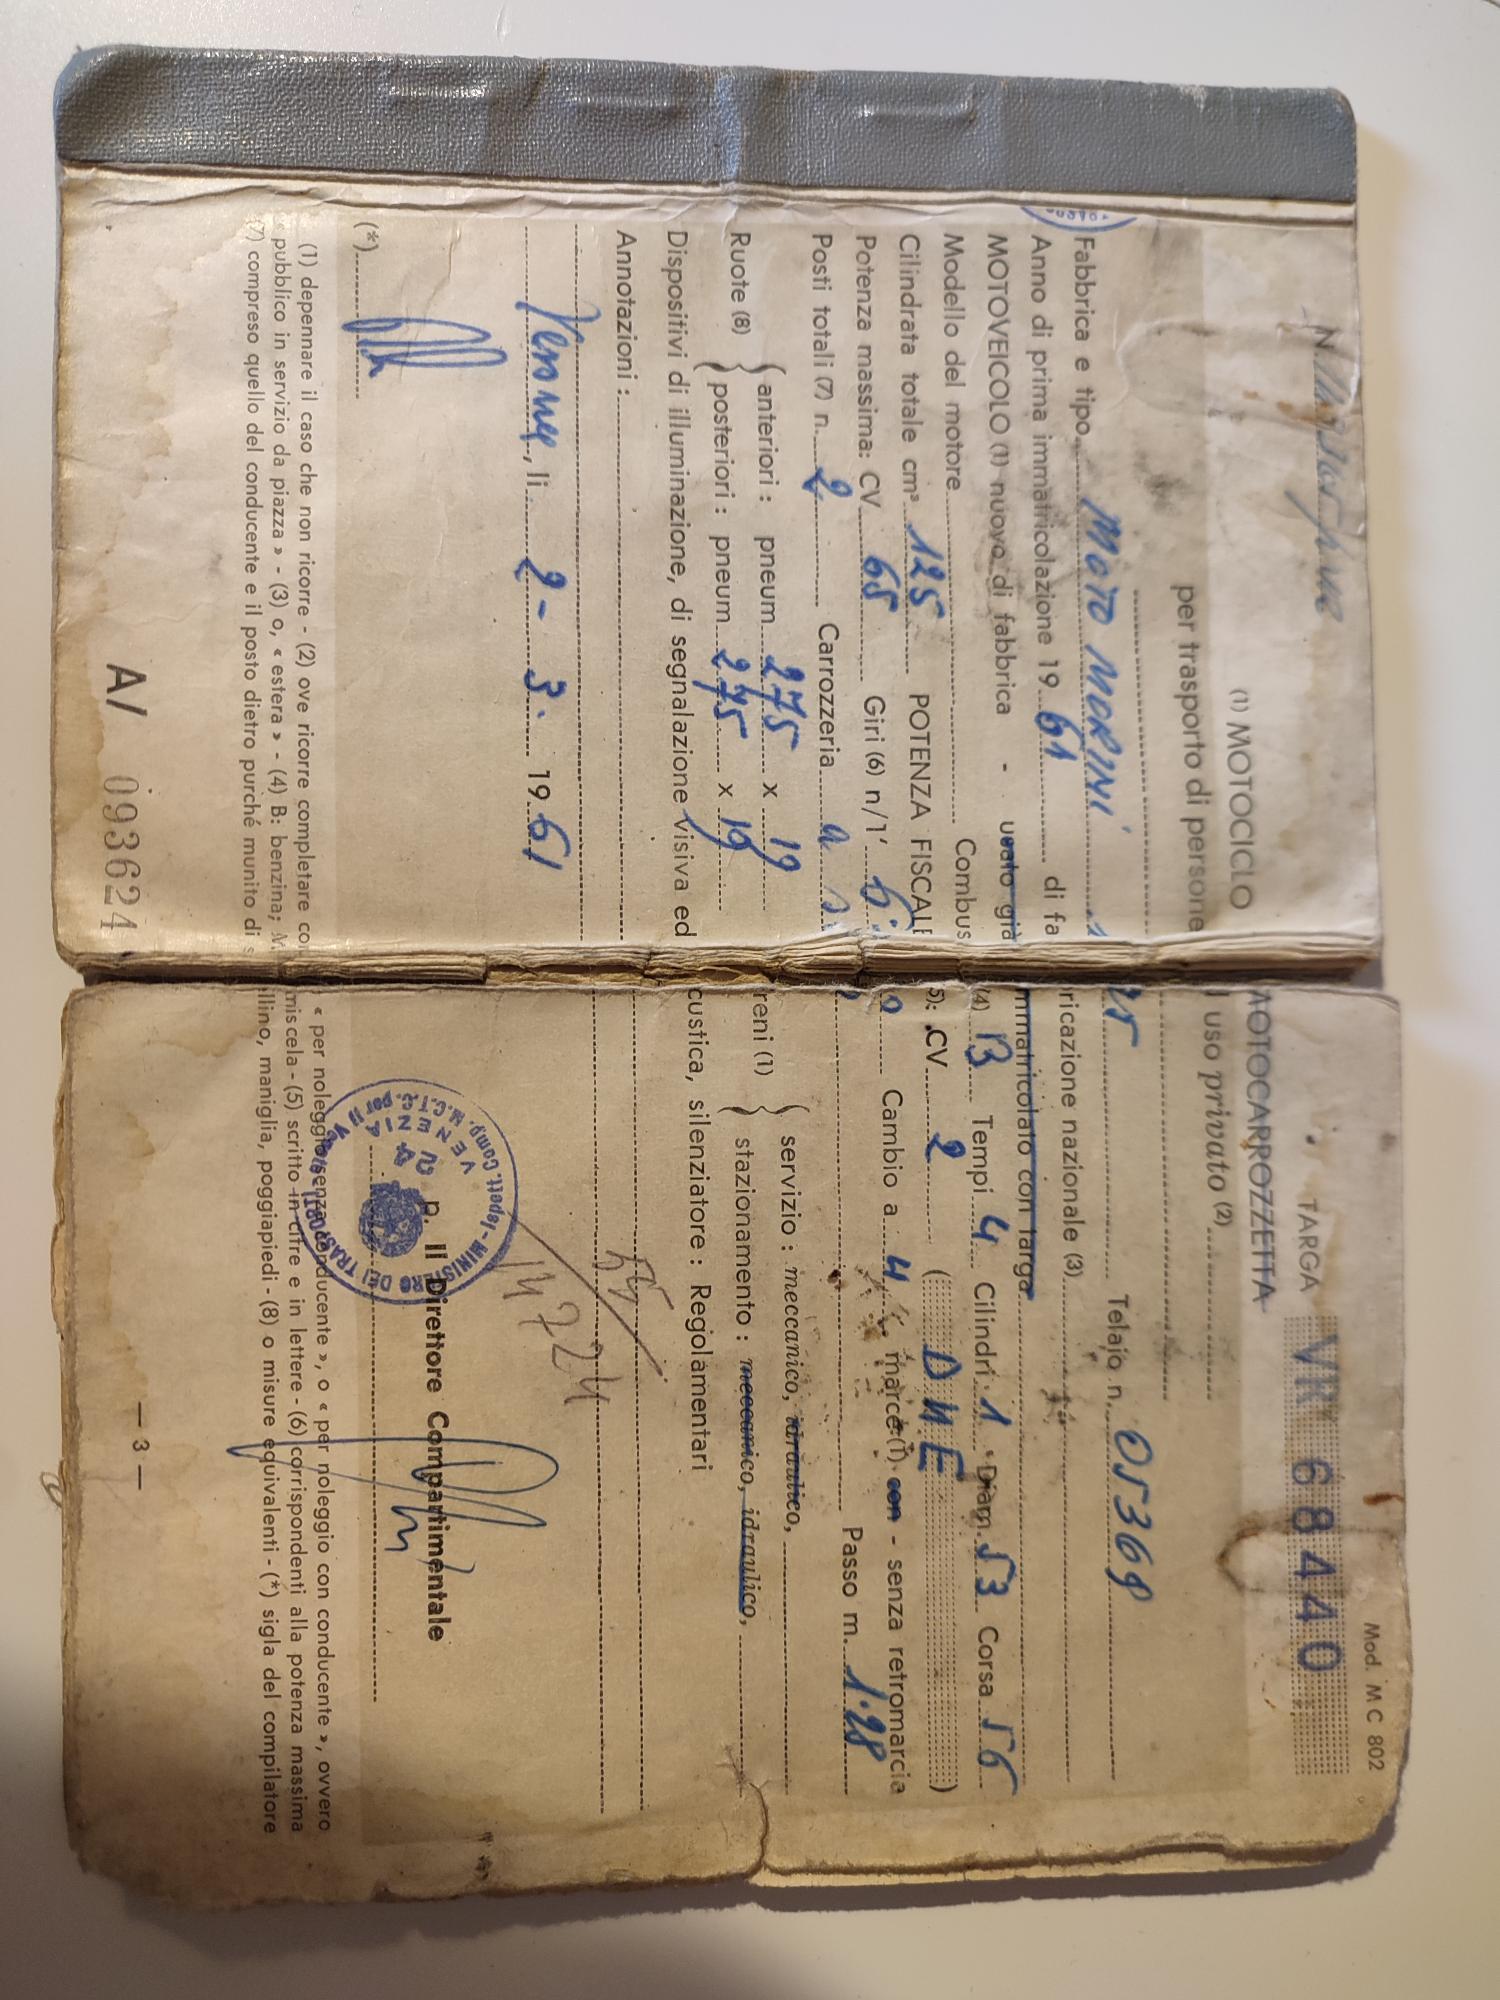 Mod. M C 802
N.
TARGA VR 68440
(1) MOTOCICLO MOTOCARROZZETTA
per trasporto di persone uso privato (2)
Fabbrica e tipo MOTO MORINI 125 Telaio n. 05369
Anno di prima immatricolazione 19 61 di fabbricazione nazionale (3)
MOTOVEICOLO (1) nuovo di fabbrica - usato già immatricolato con targa
Modello del motore Combus (4) B Tempi 4 Cilindri 1 Diam. 53 Corsa 56
Cilindrata totale cm³ 125 POTENZA FISCALE (5): CV 2 (DUE)
Potenza massima: CV 65 Giri (6) n/1' Cambio a 4 marce (1) con - senza retromarcia
Posti totali (7) n. 2 Carrozzeria Passo m. 1.28
Ruote (8) { anteriori : pneum 275 x 19 freni (1) { servizio : meccanico, idraulico,
posteriori : pneum 275 x 19 stazionamento : meccanico, idraulico,
Dispositivi di illuminazione, di segnalazione visiva ed acustica, silenziatore : Regolamentari
Annotazioni :
Verona, li 2 - 3. 1961
14724
p. Il Direttore Compartimentale
(*)
Ispett. Comp. M.C.T.C. per la VENEZIA - MINISTERO DEI TRASPORTI
(1) depennare il caso che non ricorre - (2) ove ricorre completare co « per noleggio senza conducente », o « per noleggio con conducente », ovvero
« pubblico in servizio da piazza » - (3) o, « estera » - (4) B: benzina; M: miscela - (5) scritto in cifre e in lettere - (6) corrispondenti alla potenza massima
(7) compreso quello del conducente e il posto dietro purché munito di sellino, maniglia, poggiapiedi - (8) o misure equivalenti - (*) sigla del compilatore
A/ 093624
— 3 —